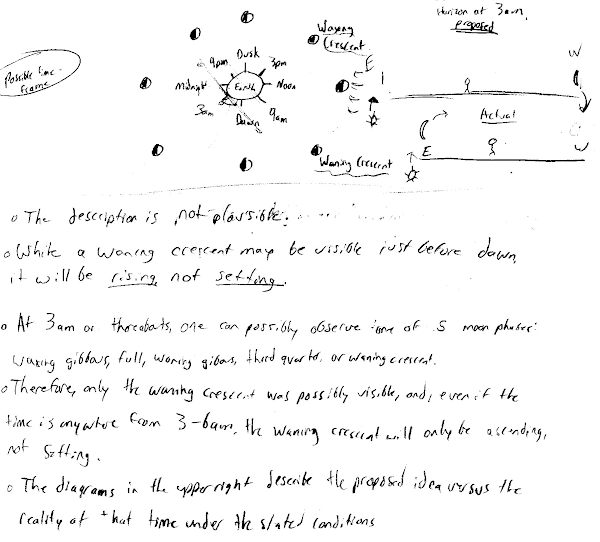 Horizon at 3am,
proposed
Waxing
Crescent
Possible time-
frame
Dusk
9pm
3pm
Midnight
Earth
Noon
3am
Dawn
9am
E
W
Actual
E
W
Waning Crescent
o The description is not plausible.
o While a waning crescent may be visible just before dawn,
it will be rising, not setting.
o At 3am or thereabouts, one can possibly observe one of 5 moon phases:
waxing gibbous, full, waning gibous, third quarter, or waning crescent.
o Therefore, only the waning crescent was possibly visible, and, even if the
time is anywhere from 3-6am, the waning crescent will only be ascending,
not setting.
o The diagrams in the upper right describe the proposed idea versus the
reality at that time under the stated conditions